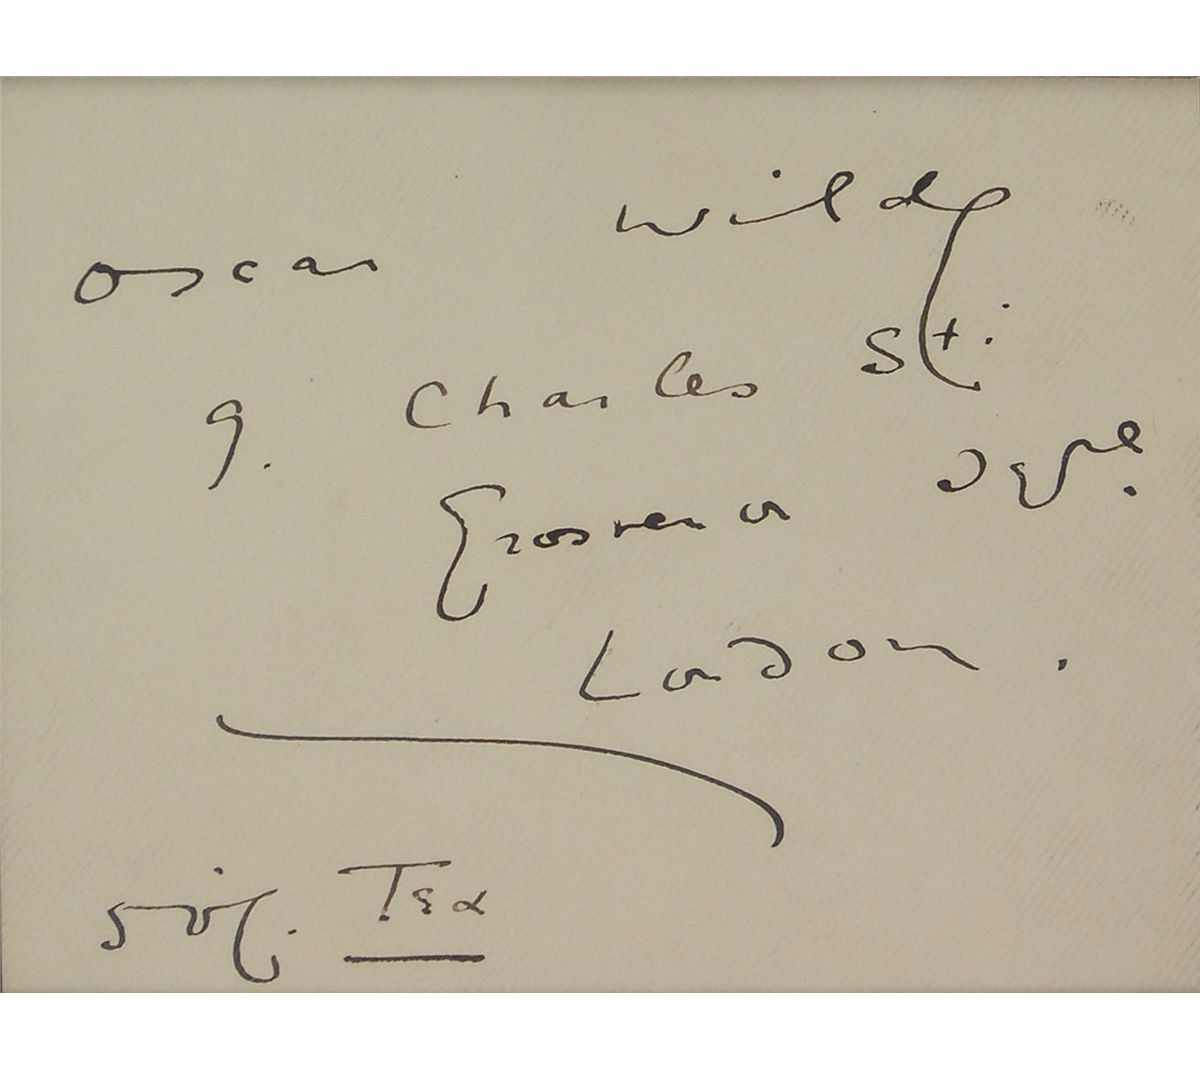 Oscar Wilde
9. Charles St.
Grosvenor Sqre.
London.
Tea